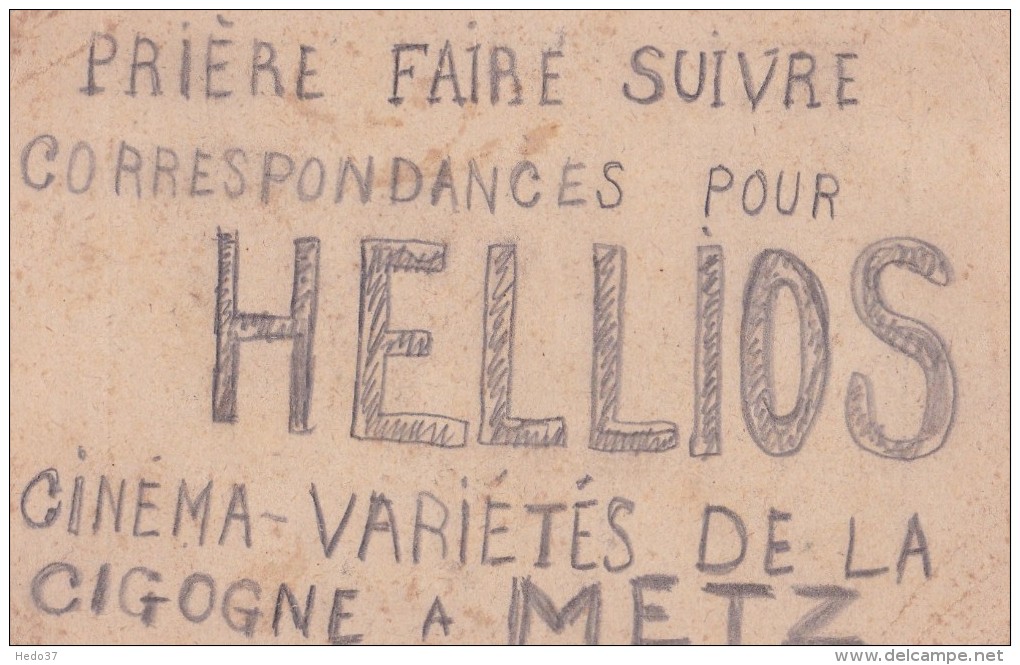 PRIÈRE FAIRE SUIVRE
CORRESPONDANCES POUR
HELLIOS
CINÉMA-VARIÉTÉS DE LA
CIGOGNE A METZ
Hedo37
delcampe.net